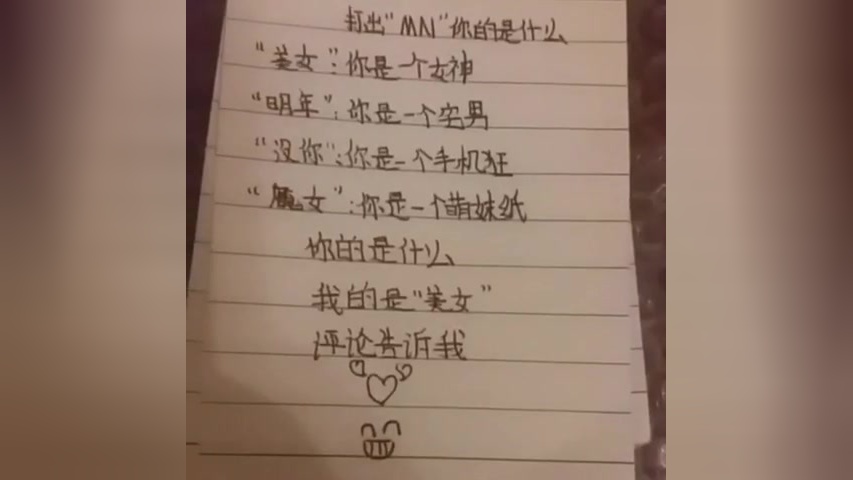 打出“MN”你的是什么
“美女”:你是一个女神
“明年”:你是一个宅男
“没你”:你是一个手机狂
“魔女”:你是一个萌妹纸
你的是什么
我的是“美女”
评论告诉我